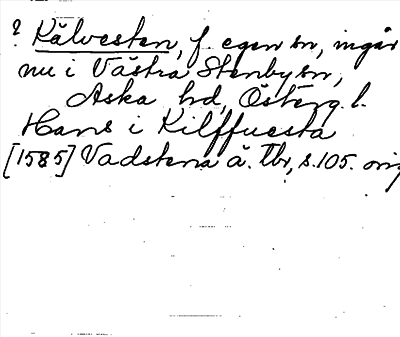 ? Kälvesten, f. egen sn, ingår
nu i Västra Stenby sn,
Aska hd, Österg. l.
Hans i Kilffuesta
[1585] Vadstena ä. Tb, s. 105. orig